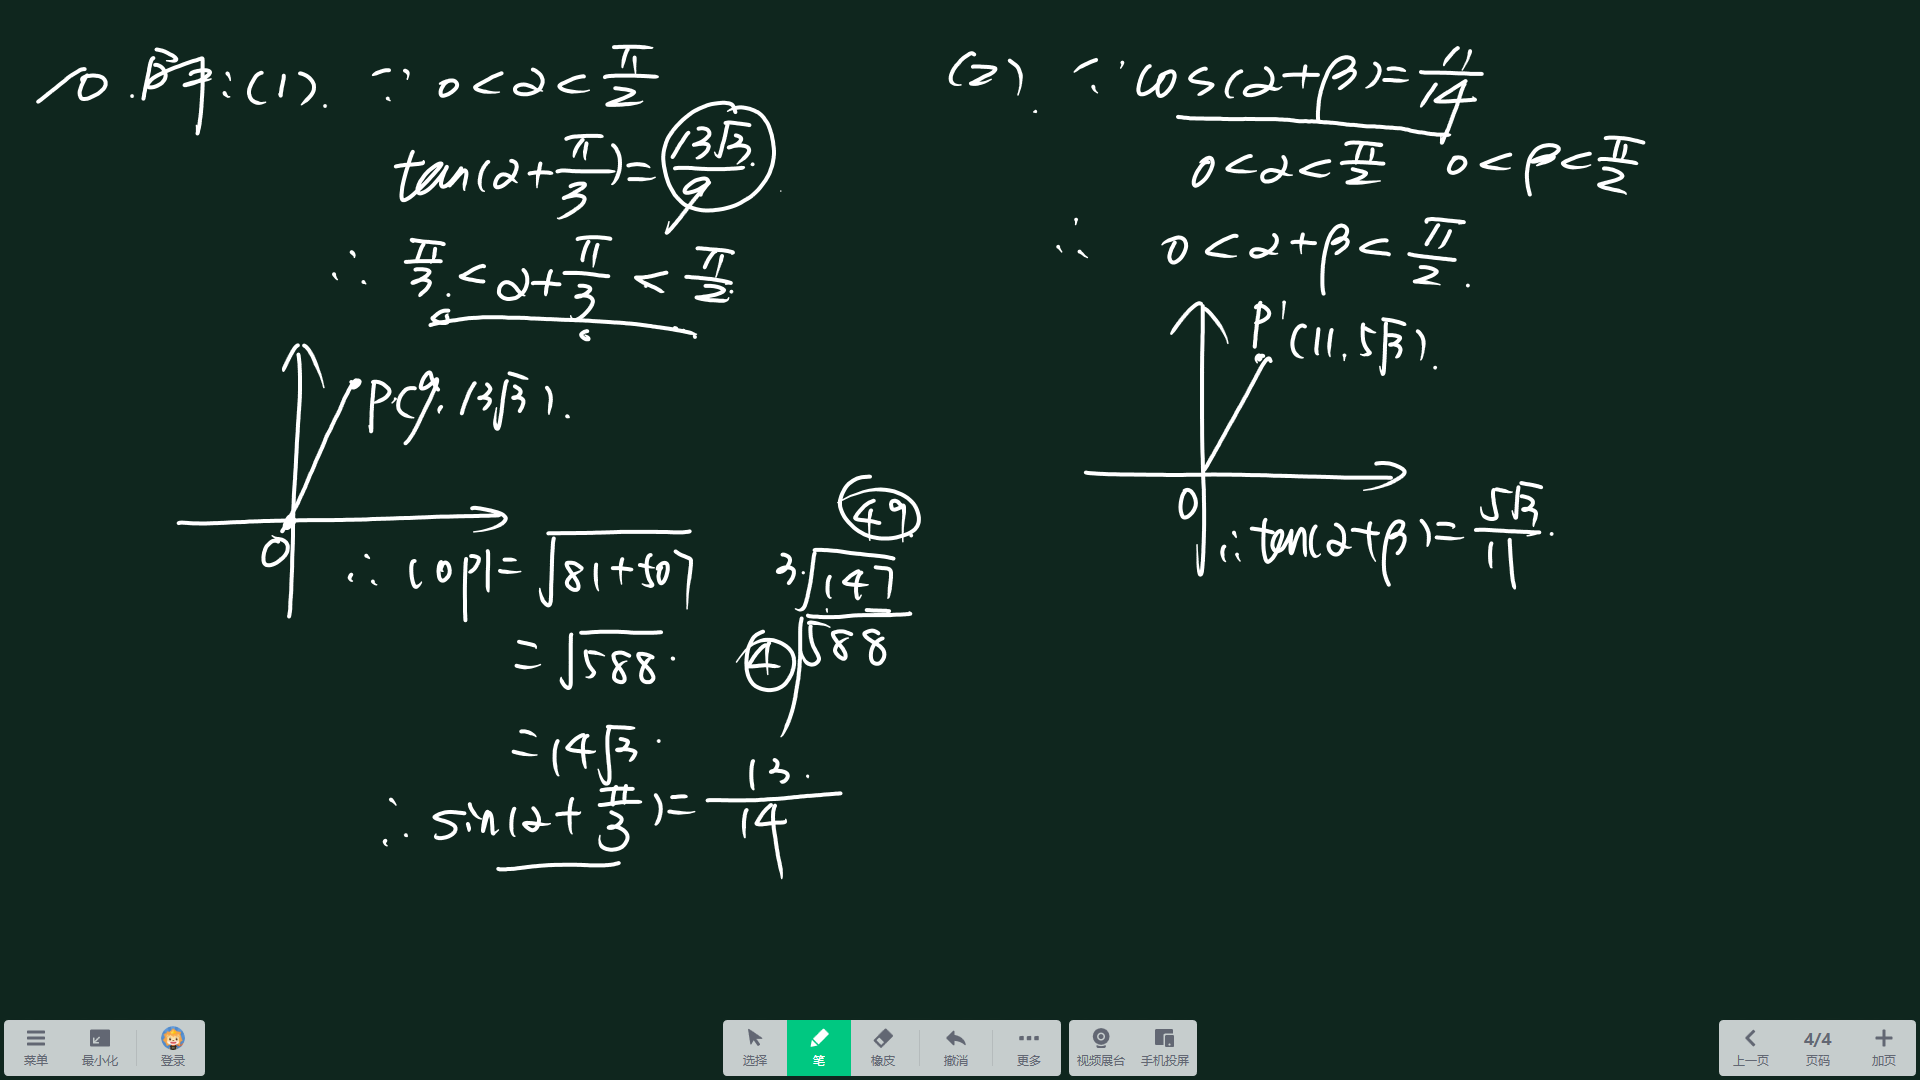 10. 解:(1). ∵ 0<α<π/2
tan(α+π/3)=13√3/9
∴ π/3<α+π/3<π/2
P(9, 13√3).
O
∴ |OP|=√(81+507)
=√588.
=14√3.
∴ sin(α+π/3)=13/14
49
3√147
4√588
(2). ∵ cos(α+β)=11/14
0<α<π/2 0<β<π/2
∴ 0<α+β<π/2.
P'(11, 5√3).
O
∴ tan(α+β)=5√3/11.
菜单 最小化 登录 选择 笔 橡皮 撤消 更多 视频展台 手机投屏 上一页 4/4 页码 加页